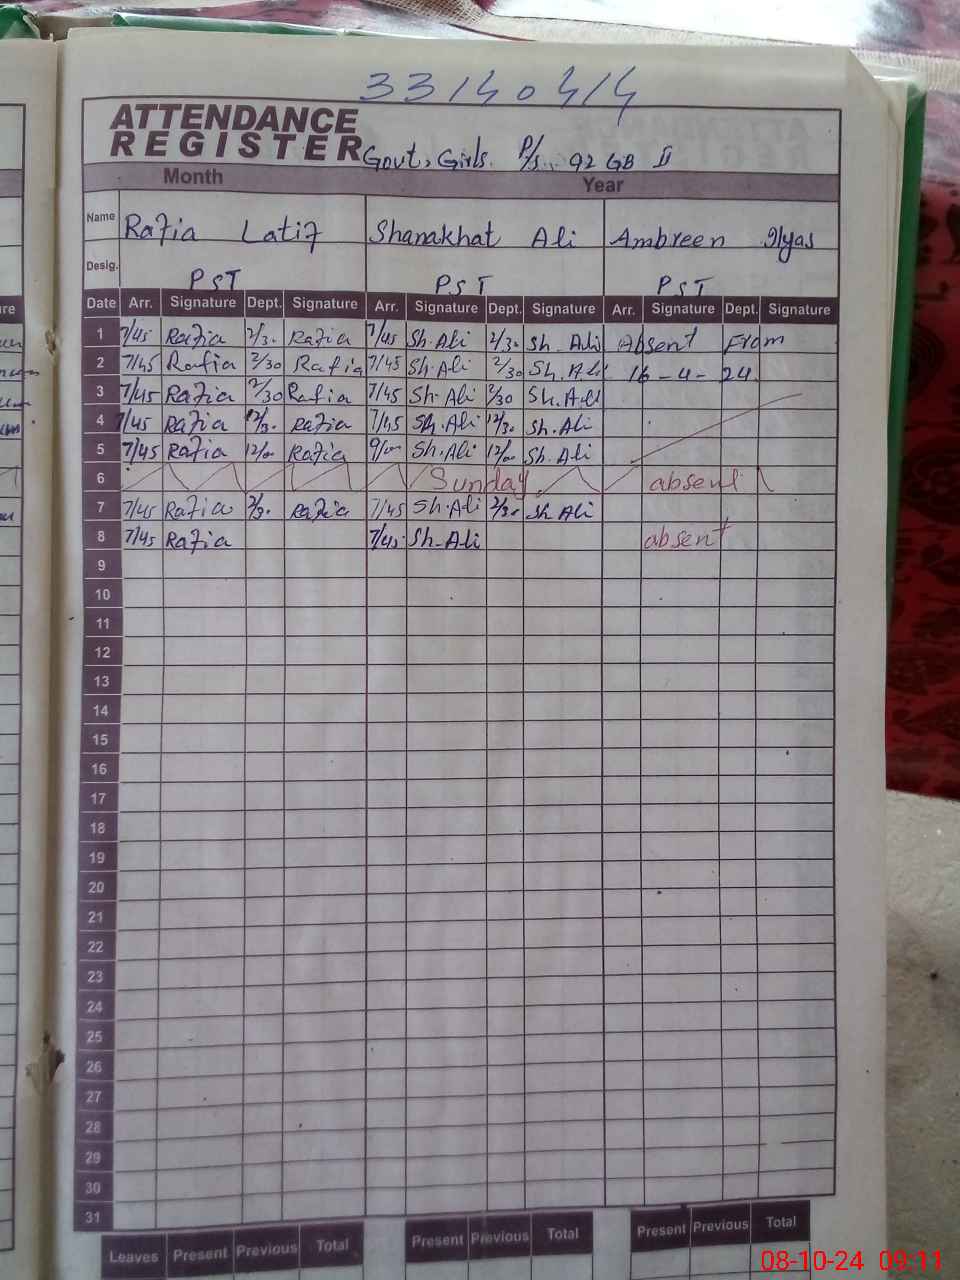 33140414
ATTENDANCE
REGISTER Govt, Girls. P/s.. 92 GB II
Month Year
Name Rafia Latif Shanakhat Ali Ambreen Ilyas
Desig. PST PST PST
Date Arr. Signature Dept. Signature Arr. Signature Dept. Signature Arr. Signature Dept. Signature
1 7/45 Rafia 2/30 Rafia 7/45 Sh.Ali 2/30 Sh.Ali Absent From
2 7/45 Rafia 2/30 Rafia 7/45 Sh.Ali 2/30 Sh.Ali 16-4-24
3 7/45 Rafia 2/30 Rafia 7/45 Sh.Ali 2/30 Sh.Ali
4 7/45 Rafia 12/30 Rafia 7/45 Sh.Ali 12/30 Sh.Ali
5 7/45 Rafia 12/00 Rafia 9/00 Sh.Ali 12/00 Sh.Ali
6 Sunday absent
7 7/45 Rafia 2/30 Rafia 7/45 Sh.Ali 2/30 Sh Ali
8 7/45 Rafia 7/45 Sh.Ali absent
9
10
11
12
13
14
15
16
17
18
19
20
21
22
23
24
25
26
27
28
29
30
31
Leaves Present Previous Total Present Previous Total Present Previous Total
08-10-24 09:11